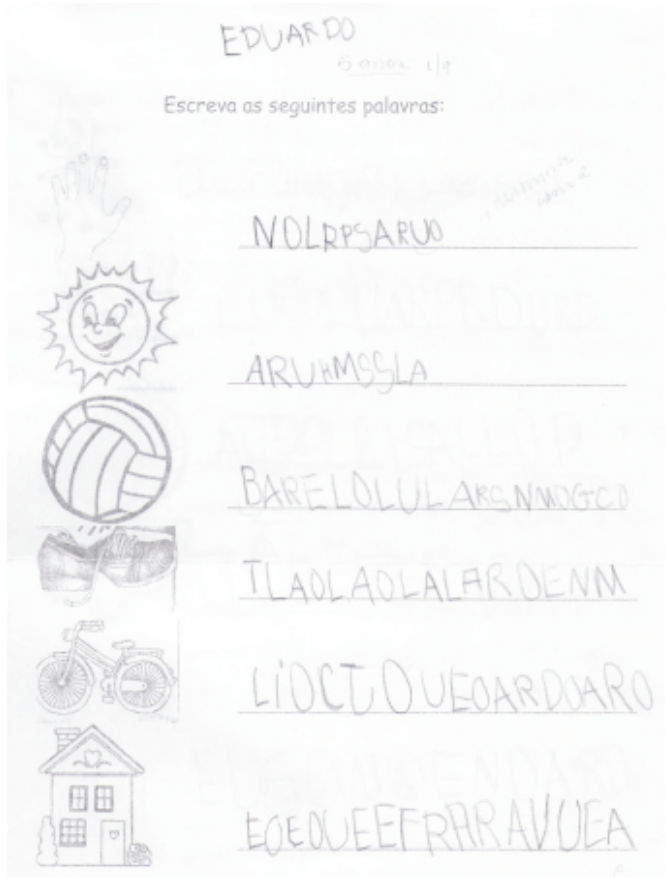 EDUARDO
5 anos
Escreva as seguintes palavras:
NOLRPSARUO
ARUHMSSLA
BARELOLULARSNMOGCO
TLAOLAOLALARDENM
LiOCTOUEOARDOARO
EOEOUEEFRARAVUEA